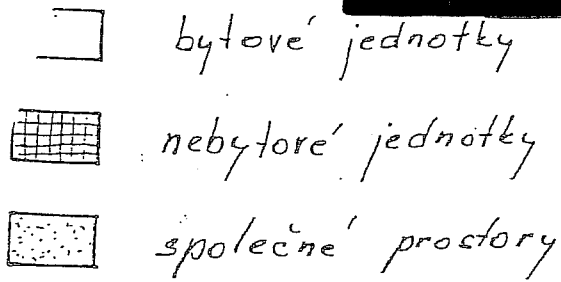 bytové jednotky
nebytové jednotky
společné prostory